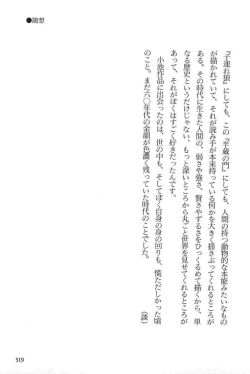 『子連れ狼』にしても、この『半蔵の門』にしても、人間の持つ動物的な本能みたいなもの
が描かれていて、それが読み手が本来持っている何かを大きく揺さぶってくれるところが
ある。その時代に生きた人間の、弱さや強さ、賢さやずるさをひっくるめて描くから、単
なる歴史というだけじゃない、もっと深いところから丸ごと世界を見せてくれるところが
あって、それがぼくはすごく好きだったんです。
小池作品に出会ったのは、世の中も、そしてぼく自身の身の回りも、慌ただしかった頃
のこと。まだ六〇年代の余韻が色濃く残っていた時代のことでした。
(談)
●随想
519